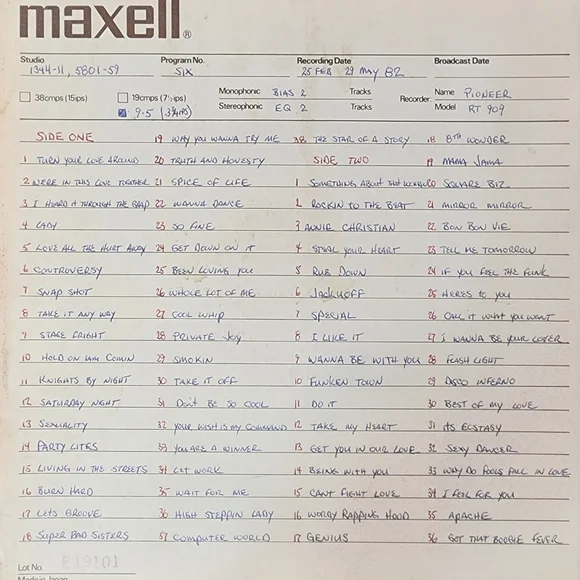 maxell®
Studio
1344-11, 5801-59
Program No.
SIX
Recording Date
25 FEB 29 MAY 82
Broadcast Date
38cmps (15ips)
19cmps (7½ips)
9.5 (3¾ips)
Monophonic BIAS 2 Tracks
Stereophonic EQ 2 Tracks
Recorder
Name PIONEER
Model RT 909
SIDE ONE
1 TURN YOUR LOVE AROUND
2 WERE IN THIS LOVE TOGETHER
3 I HEARD IT THROUGH THE GRAP
4 LADY
5 LOVE ALL THE HURT AWAY
6 CONTROVERSY
7 SNAP SHOT
8 TAKE IT ANY WAY
9 STAGE FRIGHT
10 HOLD ON IAM COMIN
11 KNIGHTS BY NIGHT
12 SATURDAY NIGHT
13 SEXUALITY
14 PARTY LITES
15 LIVING IN THE STREETS
16 BURN HARD
17 LETS GROOVE
18 SUPER BAD SISTERS
19 WHY YOU WANNA TRY ME
20 TRUTH AND HONESTY
21 SPICE OF LIFE
22 WANNA DANCE
23 SO FINE
24 GET DOWN ON IT
25 BEEN LOVING YOU
26 WHOLE LOT OF ME
27 COOL WHIP
28 PRIVATE JOY
29 SMOKIN
30 TAKE IT OFF
31 DON'T BE SO COOL
32 YOUR WISH IS MY COMMAND
33 YOU ARE A WINNER
34 LET WORK
35 WAIT FOR ME
36 HIGH STEPPIN LADY
37 COMPUTER WORLD
38 THE STAR OF A STORY
SIDE TWO
1 SOMETHING ABOUT THAT
2 ROCKIN TO THE BEAT
3 ANNIE CHRISTIAN
4 STEAL YOUR HEART
5 RUB DOWN
6 JACKUOFF
7 SPECIAL
8 I LIKE IT
9 WANNA BE WITH YOU
10 FUNKEN TOWN
11 DO IT
12 TAKE MY HEART
13 GET YOU IN OUR LOVE
14 BEING WITH YOU
15 CANT FIGHT LOVE
16 WORDY RAPPING HOOD
17 GENIUS
18 8TH WONDER
19 MAMA JAMA
20 SQUARE BIZ
21 MIRROR MIRROR
22 BON BON VIE
23 TELL ME TOMORROW
24 IF YOU FEEL THE FUNK
25 HERES TO YOU
26 CALL IT WHAT YOU WANT
27 I WANNA BE YOUR LOVER
28 FLASH LIGHT
29 DISCO INFERNO
30 BEST OF MY LOVE
31 ITS ECSTASY
32 SEXY DANCER
33 WHY DO FOOLS FALL IN LOVE
34 I FEEL FOR YOU
35 APACHE
36 GOT THAT BOOGIE FEVER
Lot No. E19101
Made in Japan